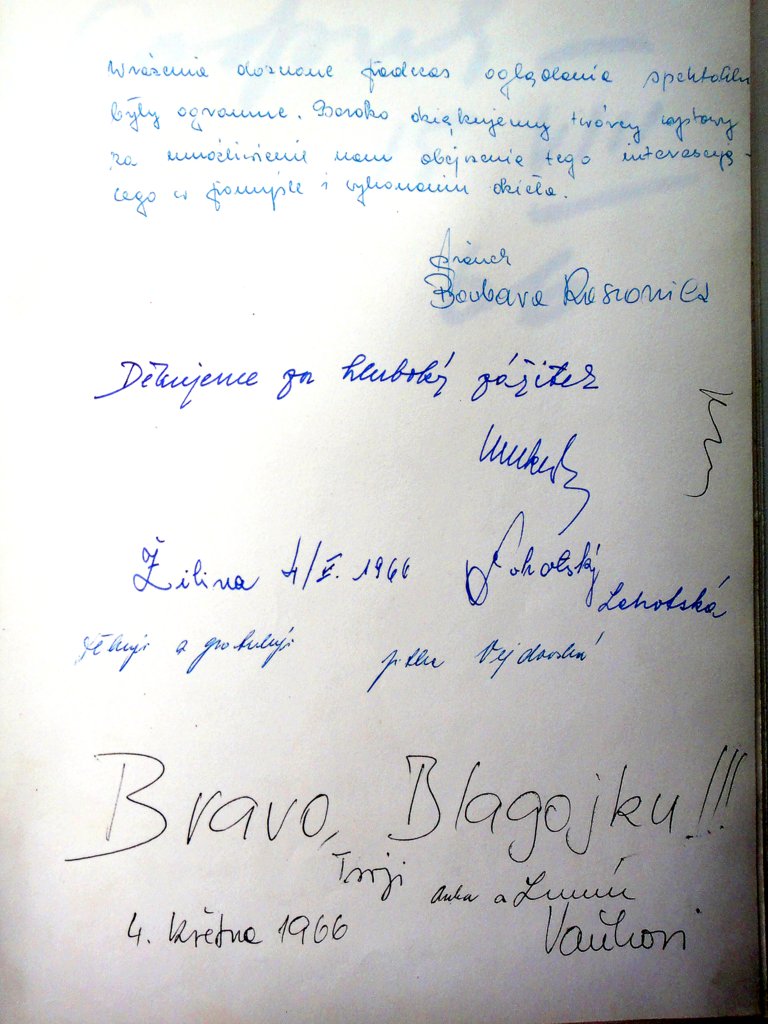 Wrażenia doznane podczas oglądania spektaklu
były ogromne. Bardzo dziękujemy twórcy wystawy
za umożliwienie nam obejrzenia tego interesują-
cego w pomyśle i wykonaniu dzieła.
Barbara
Děkujeme za hluboký zážitek
Žilina 4/V. 1966 Lehotský
Lehotská
děkuji a gratuluji Jitka Vejdovská
Bravo, Blagojku!!!
Tvoji Anka a
4. května 1966 Vaňkovi